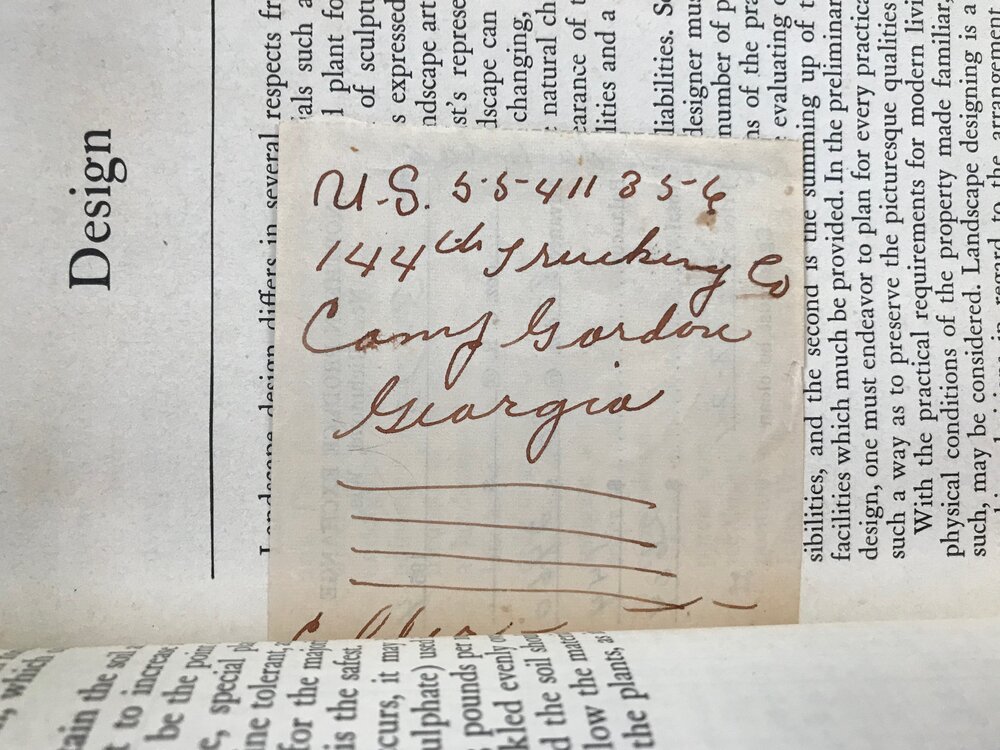 Design
Landscape design differs in several respects fr
als such a
l plant fo
of sculptu
s expressed
ndscape art
st's represe
dscape can
changing,
natural ch
earance of t
lities and a
liabilities. So
designer mus
number of p
ns of the pra
evaluating o
summing up of t
sibilities, and the second is the
facilities which much be provided. In the preliminar
design, one must endeavor to plan for every practica
such a way as to preserve the picturesque qualities
With the practical requirements for modern livi
physical conditions of the property made familiar,
such, may be considered. Landscape designing is a
regard to the arrangement
U.S. 55411356
144th Trucking Co
Camp Gordon
Georgia
, which
tain the soil
t to increase
be the poin
e, special pl
ine tolerant,
for the majo
is the safest.
curs, it may
ulphate) used
pounds per
kled evenly o
d the soil shou
low the mate
the plants, as